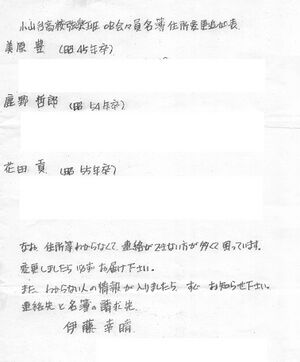 小山台高校弦楽班 OB会々員名簿 住所変更追加表
美原 豊 (昭45年卒)
鹿野 哲郎 (昭54年卒)
花田 貢 (昭55年卒)
なお、住所等わからなくて、連絡ができない方が多くて困っています。
変更しましたら 必ず お届け下さい。
また、わからない人の情報が入りましたら すぐ お知らせ下さい。
連絡先と名簿の請求先
伊藤 幸晴